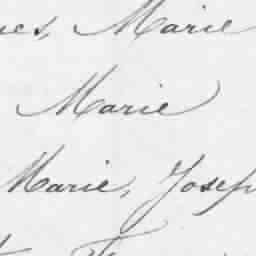 Marie
Marie
Marie, Joseph